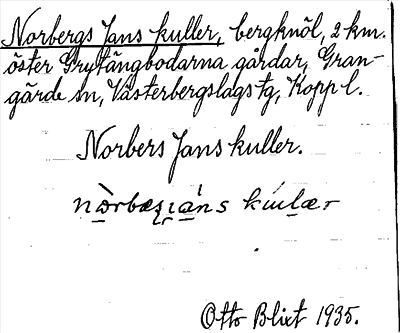 Norbergs Jans kuller, bergknöl, 2 km.
öster Grytängbodarna gårdar, Gran-
gärde sn, Västerbergslags tg, Kopp l.
Norbers Jans kuller.
Otto Blixt 1935.